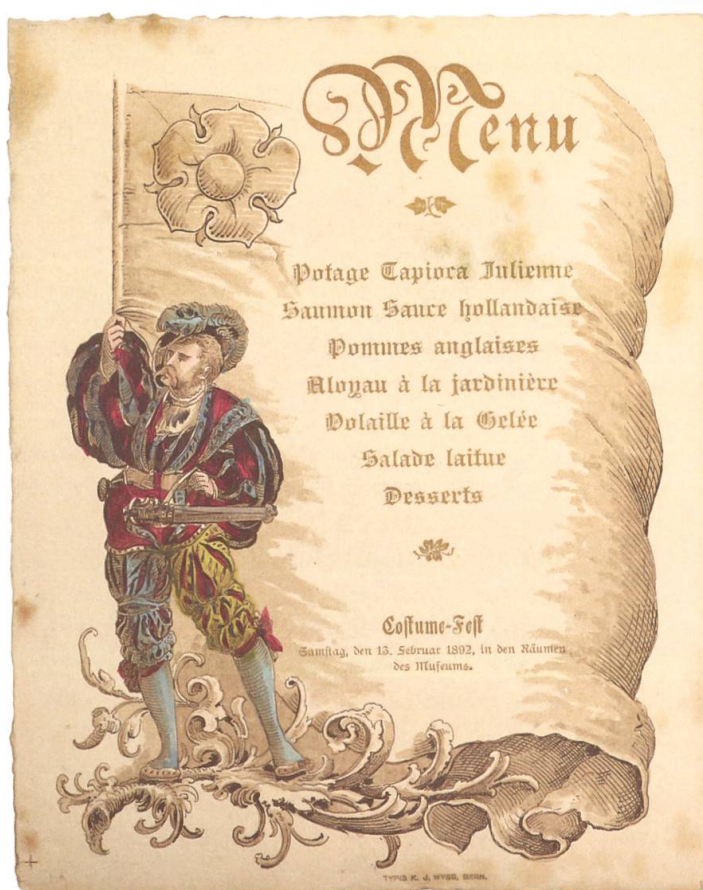 Menu
Potage Tapioca Julienne
Saumon Sauce hollandaise
Pommes anglaises
Aloyau à la jardinière
Volaille à la Gelée
Salade laitue
Desserts
Coſtume-Feſt
Samſtag, den 13. Februar 1892, in den Räumen
des Muſeums.
TYPIS K. J. WYSS, BERN.